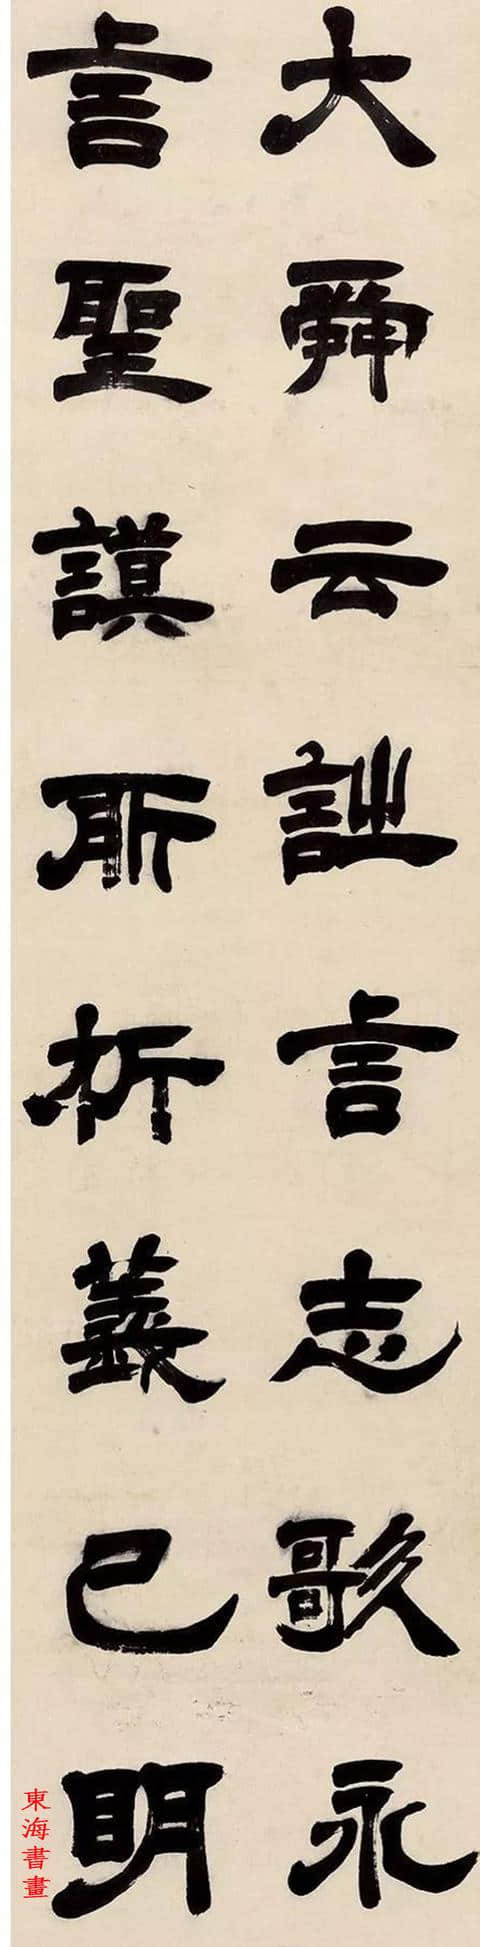 大舜云詩言志歌永
言聖謨所析義已明
東海書畫